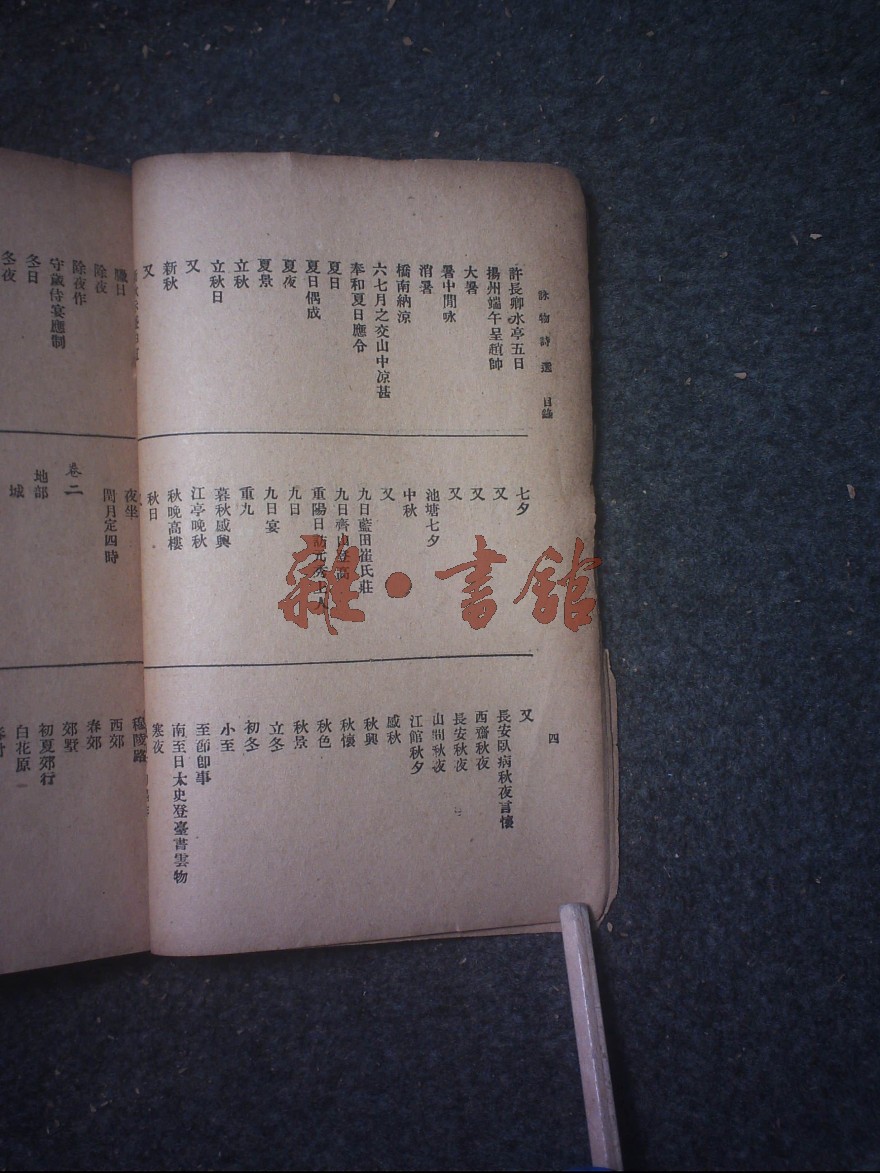 詠物詩選 目錄
四
許長卿水亭五日
揚州端午呈趙帥
大暑
暑中閒咏
消暑
橋南納涼
六七月之交山中凉甚
奉和夏日應令
夏日
夏日偶成
夏夜
夏景
立秋
立秋日
又
新秋
又
七夕
又
又
又
池塘七夕
中秋
又
九日藍田崔氏莊
九日齊山登高
重陽日訪元秀上人
九日
九日宴
重九
暮秋感興
江亭晚秋
秋晚高樓
秋日
又
長安臥病秋夜言懷
西齋秋夜
長安秋夜
山間秋夜
江館秋夕
感秋
秋興
秋懷
秋色
秋景
立冬
初冬
小至
至節即事
南至日太史登臺書雲物
寒夜
臘日
除夜
除夜作
守歲侍宴應制
冬日
冬夜
夜坐
閏月定四時
卷二
地部
城
穆陵路
西郊
春郊
郊墅
初夏郊行
白花原
雜·書館